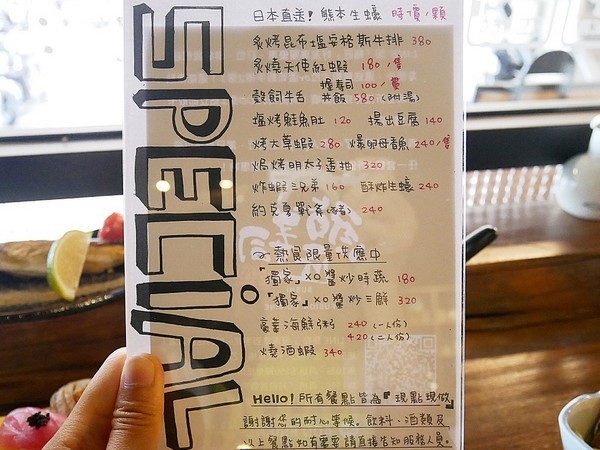 SPECiAL
日本直送! 熊本生蠔 時價/顆
炙烤昆布塩安格斯牛排 380
炙燒天使紅蝦 180/隻
握壽司 100/貫
穀飼牛舌 丼飯 580 (附湯)
塩烤鮭魚肚 120 揚出豆腐 140
烤大草蝦 280 爆卵母香魚 240/隻
焗烤明太子透抽 320
炸蝦三兄弟 160 酥炸生蠔 240
約克夏戰斧(豬) 240
熱食限量供應中
「獨家」XO醬炒時蔬 180
「獨家」XO醬炒三鮮 320
豪華海鮮粥 240 (一人份)
420 (二人份)
燒酒蝦 340
Hello! 所有餐點皆為『現點現做』
謝謝您的耐心等候。飲料、酒類及
以上餐點如有需要請直接告知服務人員。